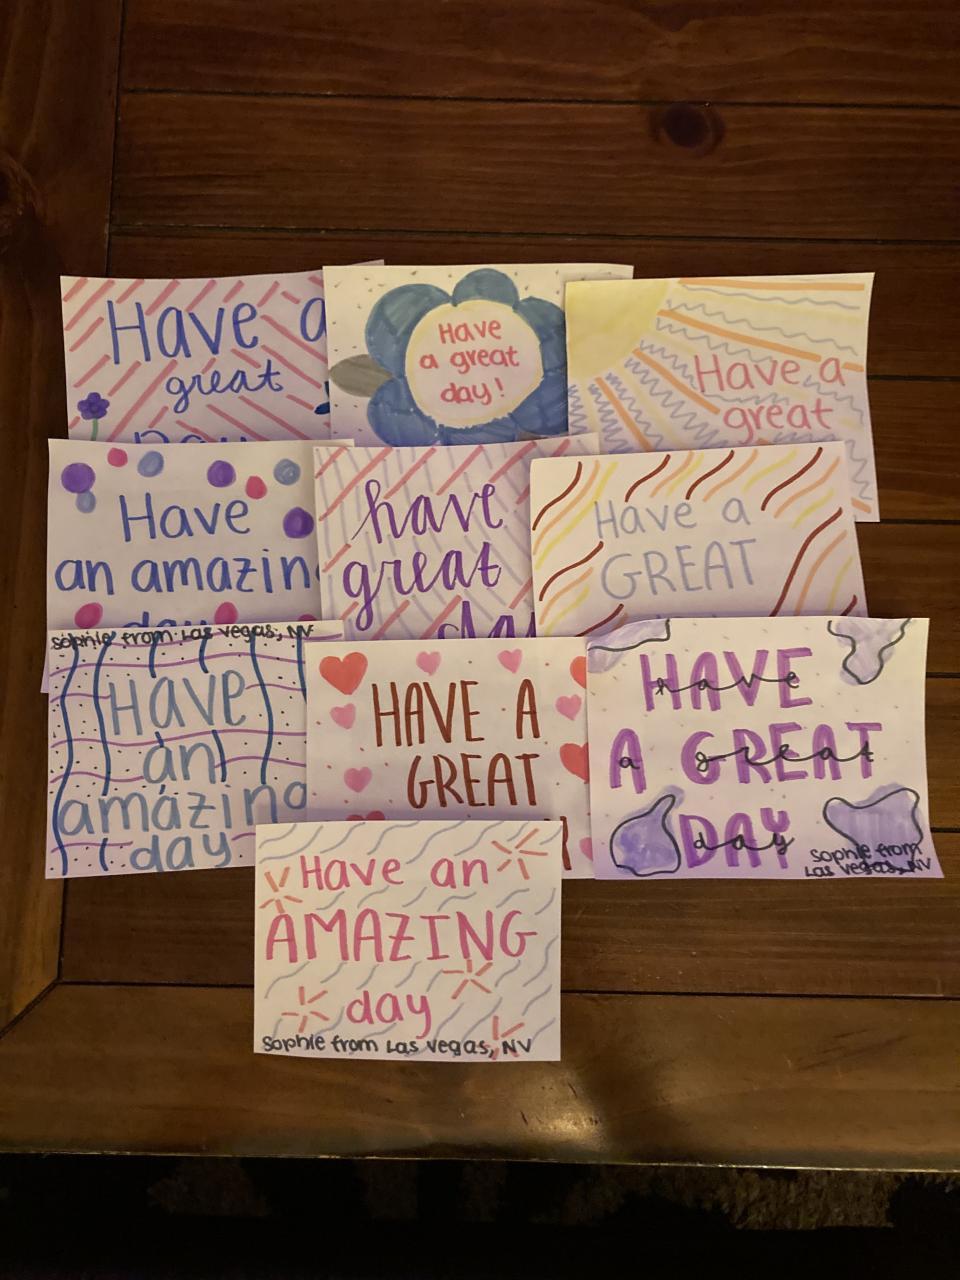 Have a
great
Day
Have
a great
day!
Have a
great
Have
an amazin
day
have
great
day
Have a
GREAT
Sophie from Las Vegas, NV
Have
an
amazing
day
HAVE A
GREAT
HAVE
have
A GREAT
a great
DAY
day
Sophie from
Las Vegas, NV
Have an
AMAZING
day
Sophie from Las Vegas, NV